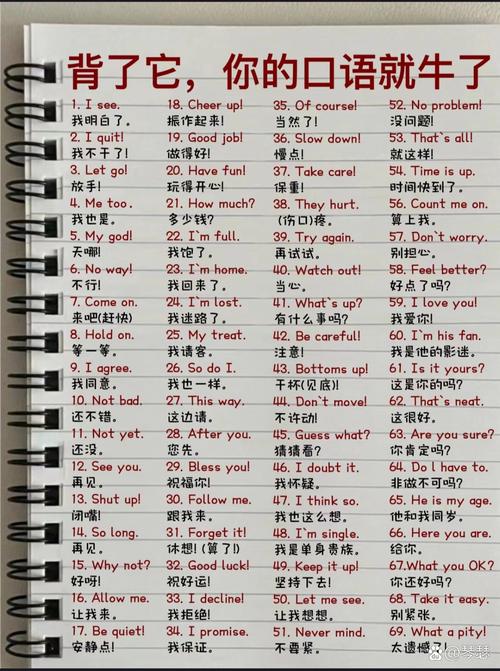 背了它，你的口语就牛了
1. I see.
我明白了。
2. I quit!
我不干了!
3. Let go!
放手!
4. Me too.
我也是。
5. My god!
天哪!
6. No way!
不行!
7. Come on.
来吧(赶快)
8. Hold on.
等一等。
9. I agree.
我同意。
10. Not bad.
还不错。
11. Not yet.
还没。
12. See you.
再见。
13. Shut up!
闭嘴!
14. So long.
再见。
15. Why not?
好呀!
16. Allow me.
让我来。
17. Be quiet!
安静点!
18. Cheer up!
振作起来!
19. Good job!
做得好!
20. Have fun!
玩得开心!
21. How much?
多少钱?
22. I`m full.
我饱了。
23. I`m home.
我回来了。
24. I`m lost.
我迷路了。
25. My treat.
我请客。
26. So do I.
我也一样。
27. This way.
这边请。
28. After you.
您先。
29. Bless you!
祝福你!
30. Follow me.
跟我来。
31. Forget it!
休想! (算了!)
32. Good luck!
祝好运!
33. I decline!
我拒绝!
34. I promise.
我保证。
35. Of course!
当然了!
36. Slow down!
慢点!
37. Take care!
保重!
38. They hurt.
(伤口)疼。
39. Try again.
再试试。
40. Watch out!
当心。
41. What`s up?
有什么事吗?
42. Be careful!
注意!
43. Bottoms up!
干杯(见底)!
44. Don`t move!
不许动!
45. Guess what?
猜猜看?
46. I doubt it.
我怀疑。
47. I think so.
我也这么想。
48. I`m single.
我是单身贵族。
49. Keep it up!
坚持下去!
50. Let me see.
让我想想。
51. Never mind.
不要紧。
52. No problem!
没问题!
53. That`s all!
就这样!
54. Time is up.
时间快到了。
56. Count me on.
算上我。
57. Don`t worry.
别担心。
58. Feel better?
好点了吗?
59. I love you!
我爱你!
60. I`m his fan.
我是他的影迷。
61. Is it yours?
这是你的吗?
62. That`s neat.
这很好。
63. Are you sure?
你肯定吗?
64. Do l have to.
非做不可吗?
65. He is my age.
他和我同岁。
66. Here you are.
给你。
67.What you OK?
你还好吗?
68. Take it easy.
别紧张。
69. What a pity!
太遗憾了